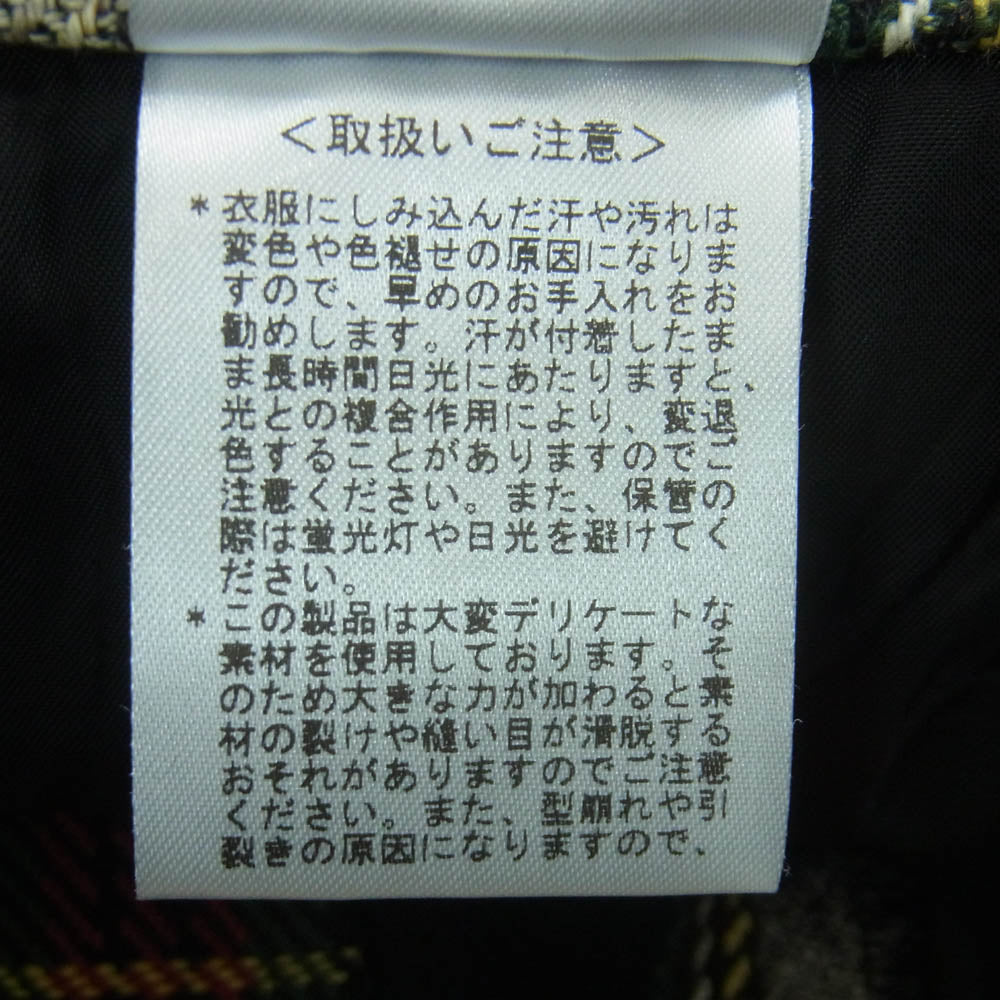 <取扱いご注意>
*衣服にしみ込んだ汗や汚れは
変色や色褪せの原因になりま
すので、早めのお手入れをお
勧めします。汗が付着したま
ま長時間日光にあたりますと、
光との複合作用により、変退
色することがありますのでご
注意ください。また、保管の
際は蛍光灯や日光を避けてく
ださい。
*この製品は大変デリケートな
素材を使用しております。そ
のため大きな力が加わると素
材の裂けや縫い目が滑脱する
おそれがありますのでご注意
ください。また、型崩れや引
裂きの原因になりますので、